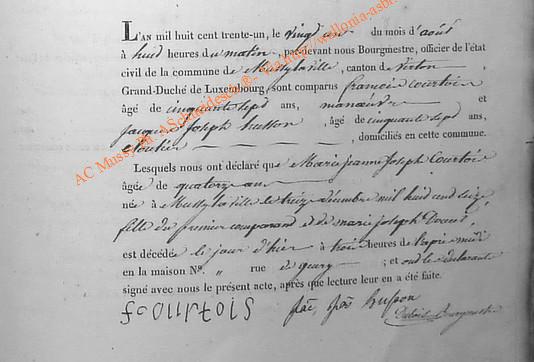 L'AN mil huit cent trente-un, le vingt un du mois d'août
à huit heures du matin, par-devant nous Bourgmestre, officier de l'état
civil de la commune de Mussy la ville, canton de virton,
Grand-Duché de Luxembourg, sont comparus françois Courtois
âgé de cinquante sept ans, manœuvre et
Jacques Joseph husson, âgé de cinquante sept ans,
cloutier, domiciliés en cette commune.
Lesquels nous ont déclaré que Marie Jeanne Joseph Courtois
âgée de quatorze ans
née à Mussy la ville le treize décembre mil huit cent seize
fille du premier comparant et de marie Joseph
est décédée le jour d'hier à trois heures de l'après midi
en la maison N°. " rue de ; et ont les déclarants
signé avec nous le présent acte, après que lecture leur en a été faite.
husson
Bourgmestre
AC Mussy